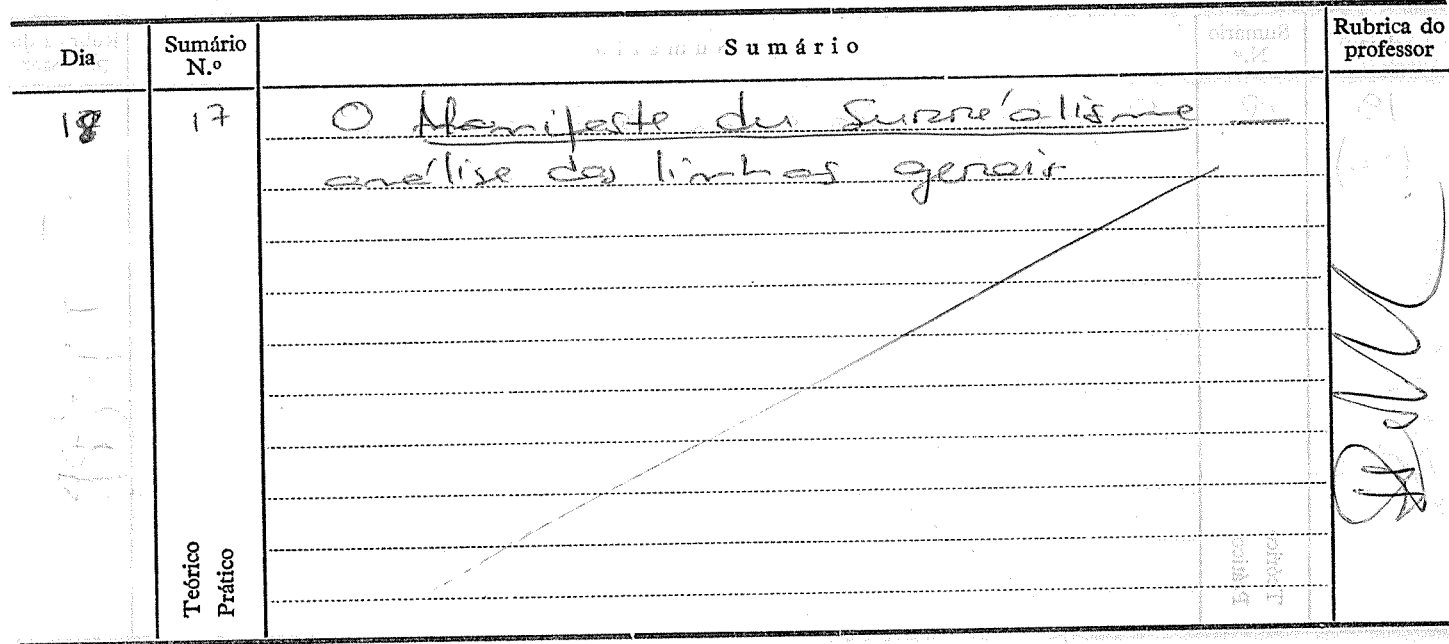 Dia Sumário N.º Sumário Rubrica do professor
18 17 O Manifeste du Surréalisme
análise das linhas gerais
Teórico
Prático